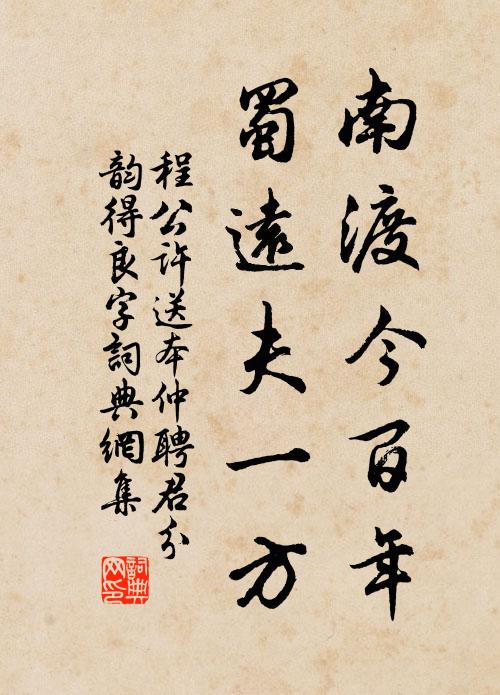 南渡今百年
蜀遠夫一方
程公許送本仲聘君分
韵得良字詞典網集
詞典网印